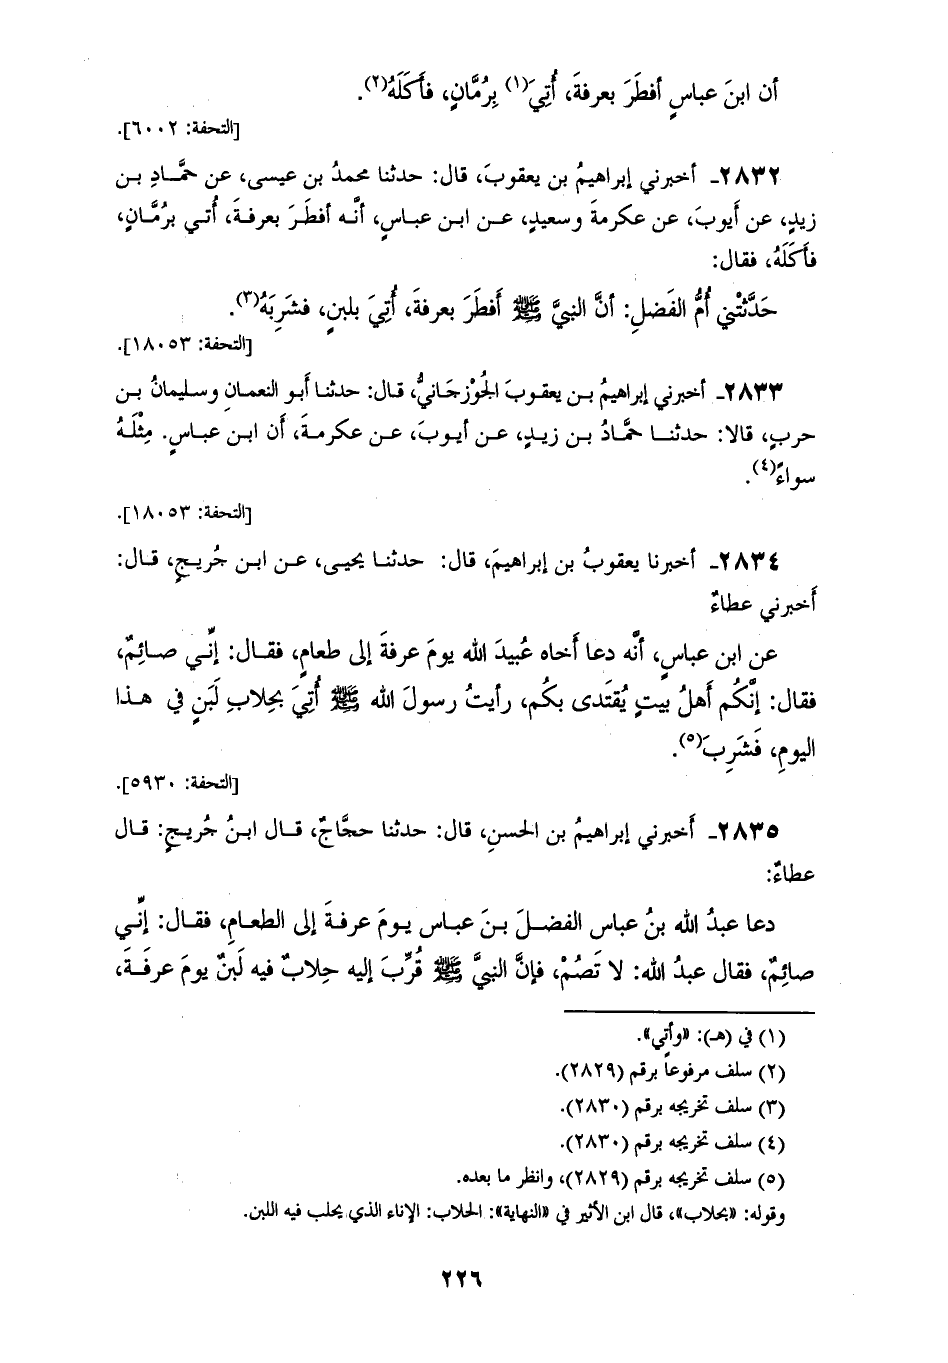 أن ابنَ عباسٍ أفطَرَ بعرفةَ، أُتِيَ(١) بِرُمَّانٍ، فأَكَلَهُ(٢).
[التحفة: ٦٠٠٢].
٢٨٣٢ـ أخبرني إبراهيمُ بن يعقوبَ، قال: حدثنا محمدُ بن عيسى، عن حمَّادِ بن
زيدٍ، عن أيوبَ، عن عكرمةَ وسعيدٍ، عن ابن عباسٍ، أنَّه أفطَرَ بعرفةَ، أُتي برُمَّانٍ،
فأَكَلَهُ، فقال:
حَدَّثَتْني أُمُّ الفَضلِ: أنَّ النبيَّ ﷺ أفطَرَ بعرفةَ، أُتِيَ بلبنٍ، فشَرِبَهُ(٣).
[التحفة: ١٨٠٥٣].
٢٨٣٣ـ أخبرني إبراهيمُ بن يعقوبَ الجُوْزجَانيُّ، قال: حدثنا أبو النعمانِ وسليمانُ بن
حربٍ، قالا: حدثنا حمَّادُ بن زيدٍ، عن أيوبَ، عن عكرمةَ، أن ابن عباسٍ. مِثْلَهُ
سواءً(٤).
[التحفة: ١٨٠٥٣].
٢٨٣٤ـ أخبرنا يعقوبُ بن إبراهيمَ، قال: حدثنا يحيى، عن ابن جُريجٍ، قال:
أخبرني عطاءٌ
عن ابن عباسٍ، أنَّه دعا أخاه عُبيدَ الله يومَ عرفةَ إلى طعامٍ، فقال: إنِّي صائِمٌ،
فقال: إنَّكُم أهلُ بيتٍ يُقتَدى بكُم، رأيتُ رسولَ الله ﷺ أُتِيَ بحِلابِ لَبَنٍ في هذا
اليومِ، فَشَرِبَ(٥).
[التحفة: ٥٩٣٠].
٢٨٣٥ـ أخبرني إبراهيمُ بن الحسنِ، قال: حدثنا حجَّاجٌ، قال ابنُ جُريجٍ: قال
عطاءٌ:
دعا عبدُ الله بنُ عباس الفضلَ بنَ عباس يومَ عرفةَ إلى الطعامِ، فقال: إنِّي
صائِمٌ، فقال عبدُ الله: لا تَصُمْ، فإنَّ النبيَّ ﷺ قُرِّبَ إليه حِلابٌ فيه لَبَنٌ يومَ عرفَةَ،
(١) في (هـ): «وأُتي».
(٢) سلف مرفوعاً برقم (٢٨٢٩).
(٣) سلف تخريجه برقم (٢٨٣٠).
(٤) سلف تخريجه برقم (٢٨٣٠).
(٥) سلف تخريجه برقم (٢٨٢٩)، وانظر ما بعده.
وقوله: «بحلاب»، قال ابن الأثير في «النهاية»: الحلاب: الإناء الذي يحلب فيه اللبن.
٢٢٦